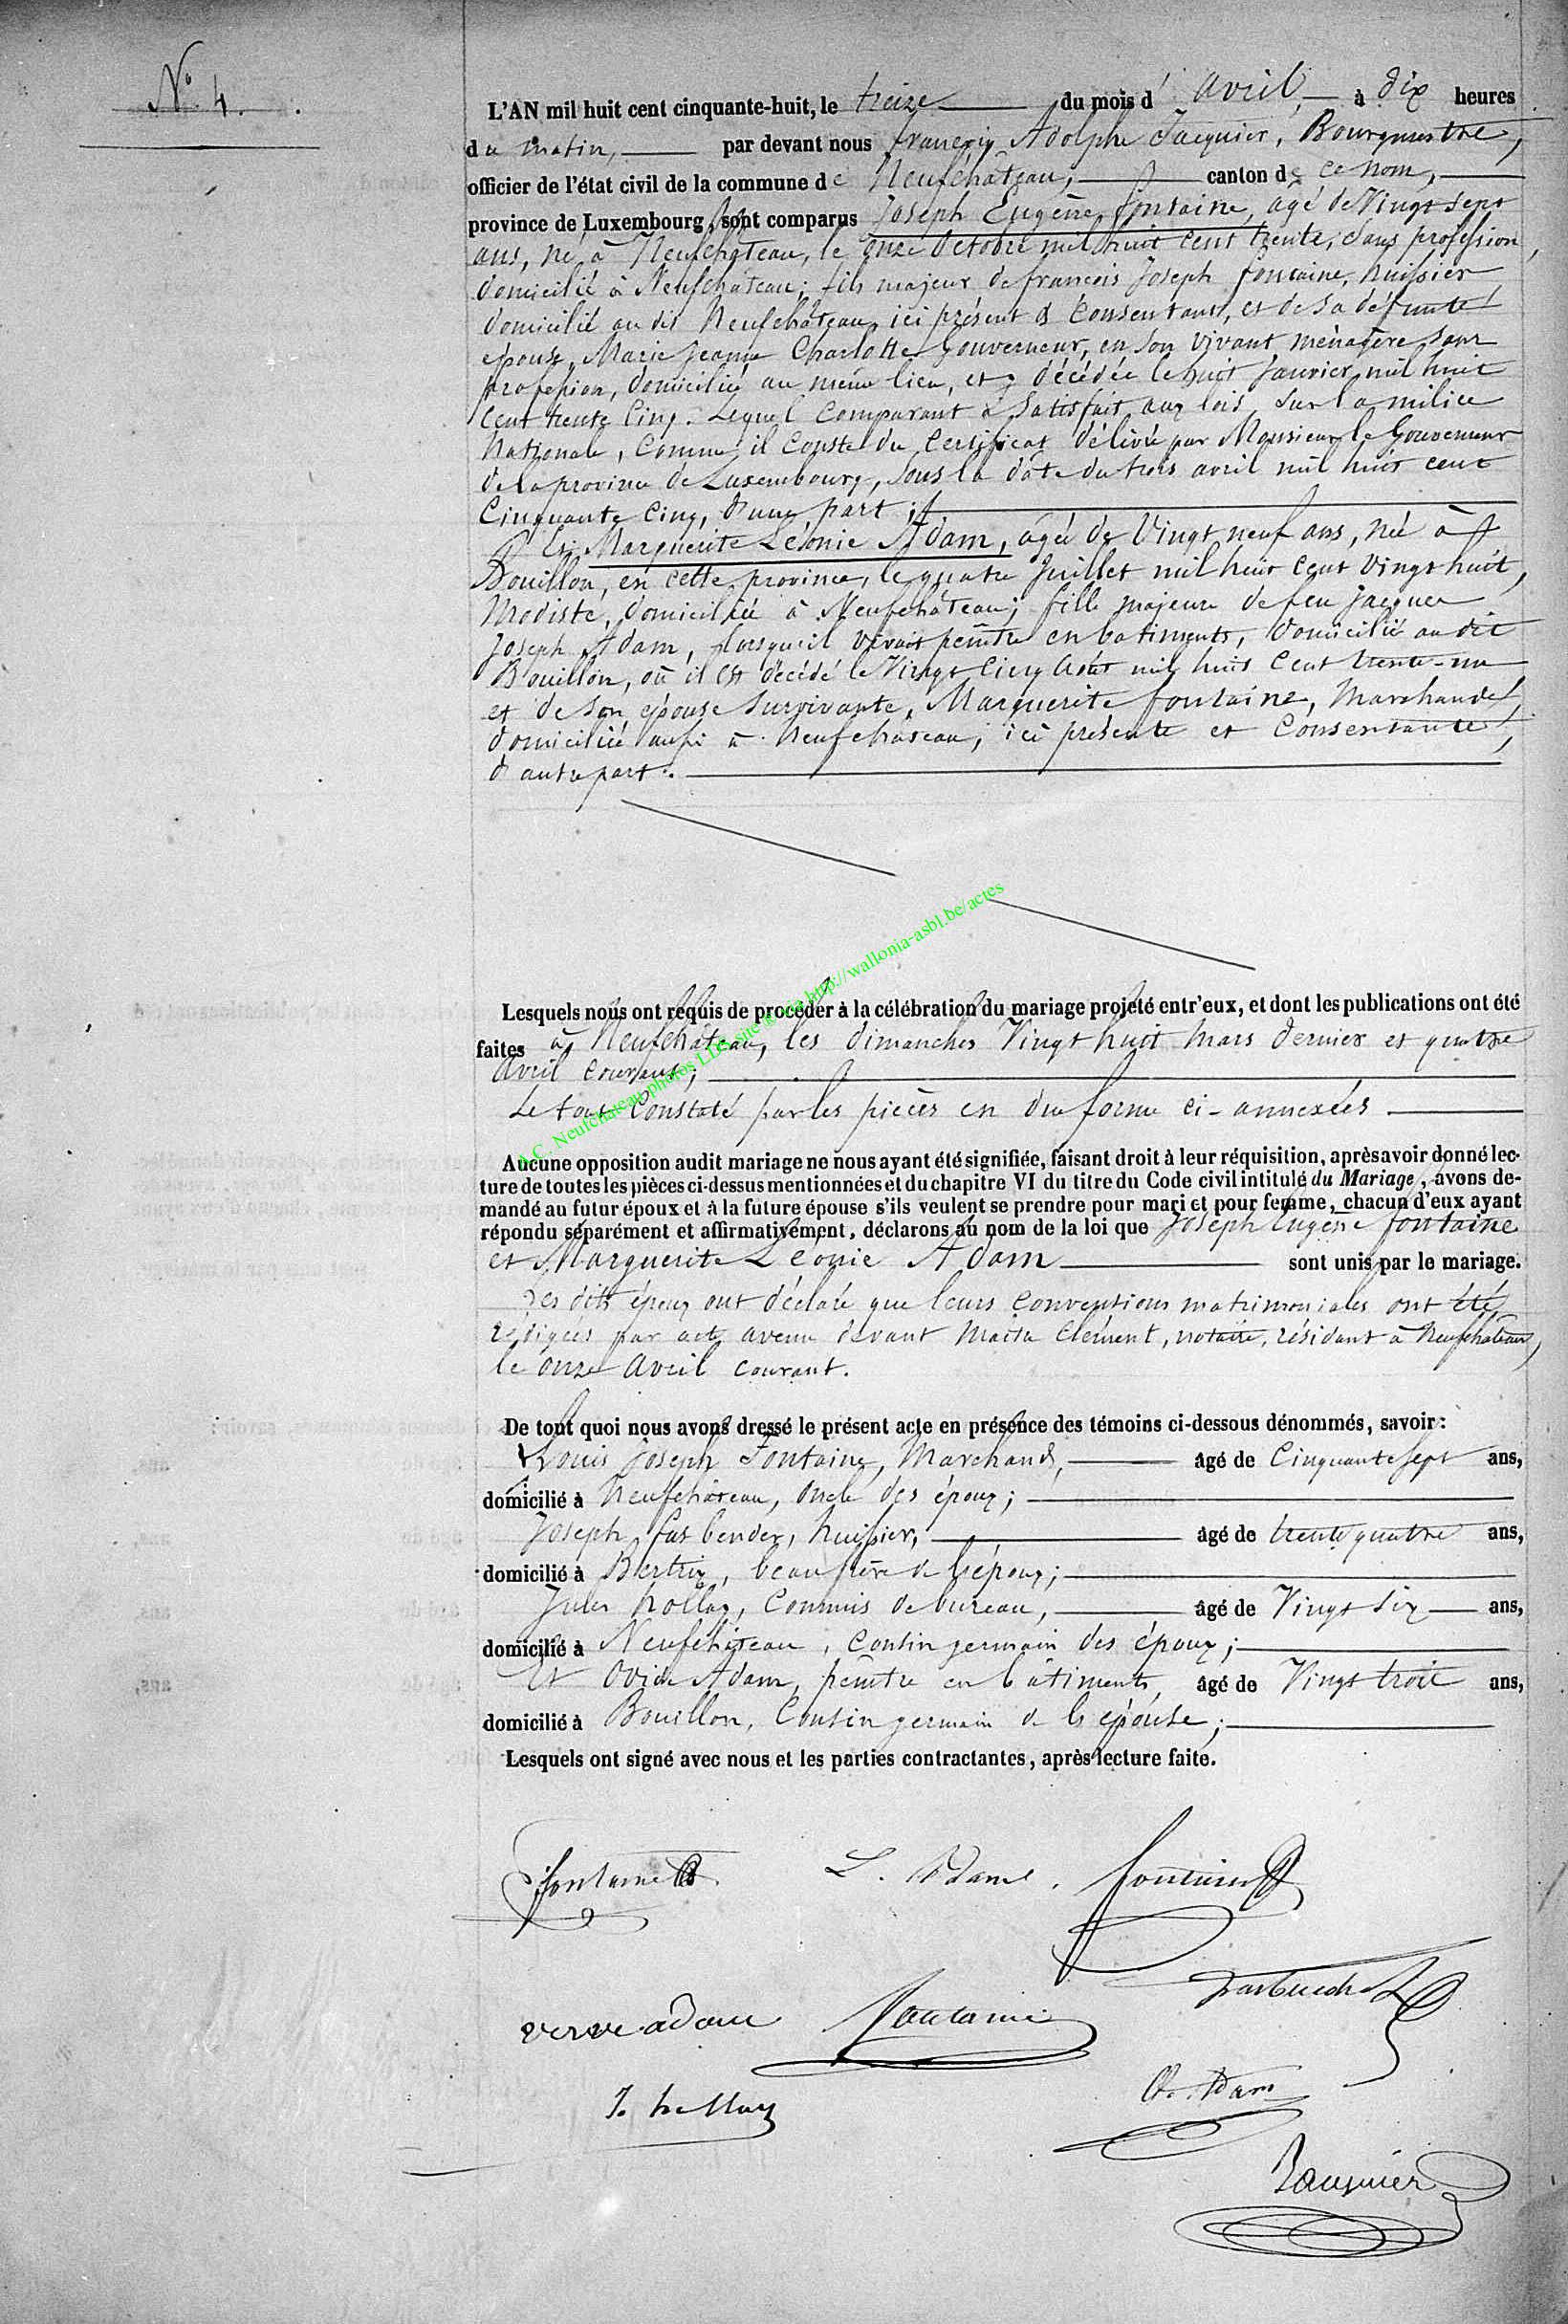 N° 4.
L'AN mil huit cent cinquante-huit, le treize du mois d'avril, à dix heures
du matin, par devant nous françois Adolphe Jacquier, Bourgmestre,
officier de l'état civil de la commune de Neufchâteau, canton de ce nom,
province de Luxembourg, sont comparus Joseph Eugène fontaine, agé de Vingt sept
ans, né à Neufchâteau, le onze Octobre mil huit cent trente, sans profession,
domicilié à Neufchâteau; fils majeur de françois Joseph fontaine, huissier,
domicilié au dit Neufchâteau, ici présent & Consentant, et de sa défunte
épouse, Marie Jeanne Charlotte Gouverneur, en son vivant ménagère sans
profession, domiciliée au même lieu, et y décédée le huit Janvier mil huit
cent trente Cinq. Lequel Comparant à Satisfait aux lois Sur la milice
Nationale, Comme il Conste du Certificat délivré par Monsieur le Gouverneur
de la province de Luxembourg, sous la date du trois avril mil huit cent
Cinquante cinq, d'une part;
Et Marguerite Léonie Adam, âgée de Vingt neuf ans, née à
Bouillon, en cette province, le quatre Juillet mil huit Cent Vingt huit,
Modiste, domiciliée à Neufchâteau; fille majeure de feu Jacques
Joseph Adam, lorsqu'il vivait peintre en batiments, domicilié au dit
Bouillon, où il est décédé le Vingt Cinq Août mil huit Cent trente-un
et de Son épouse Survivante, Marguerite fontaine, Marchande,
domiciliée aussi à Neufchâteau, ici présente et Consentante,
d'autre part.
A.C. Neufchateau photos LDS site http://wallonia-asbl.be/actes
Lesquels nous ont requis de procéder à la célébration du mariage projeté entr'eux, et dont les publications ont été
faites à Neufchâteau, les dimanches Vingt huit Mars dernier et quatre
Avril Courant;
Le tout Constaté par les pièces en due forme ci-annexées
Aucune opposition audit mariage ne nous ayant été signifiée, faisant droit à leur réquisition, après avoir donné lec-
ture de toutes les pièces ci-dessus mentionnées et du chapitre VI du titre du Code civil intitulé du Mariage, avons de-
mandé au futur époux et à la future épouse s'ils veulent se prendre pour mari et pour femme, chacun d'eux ayant
répondu séparément et affirmativement, déclarons au nom de la loi que Joseph Eugène fontaine
et Marguerite Léonie Adam sont unis par le mariage.
Les dits époux ont déclaré que leurs Conventions matrimoniales ont été
rédigées par acte avenu devant Maitre Clément, notaire, résidant à Neufchâteau,
le onze Avril Courant.
De tout quoi nous avons dressé le présent acte en présence des témoins ci-dessous dénommés, savoir:
Louis Joseph Fontaine, Marchand, âgé de Cinquante Sept ans,
domicilié à Neufchâteau, oncle des époux;
Joseph fasbender, huissier, âgé de trente quatre ans,
domicilié à Bertrix, beau frère de l'époux;
Jules hollay, Commis de bureau, âgé de Vingt Six ans,
domicilié à Neufchâteau, Cousin germain des époux;
Et Ovide Adam, peintre en bâtiments, âgé de Vingt trois ans,
domicilié à Bouillon, Cousin germain de l'épouse;
Lesquels ont signé avec nous et les parties contractantes, après lecture faite.
fontaine L. Adam. fontaine
veuve adam fontaine
J. hollay Ov. Adam
Jacquier